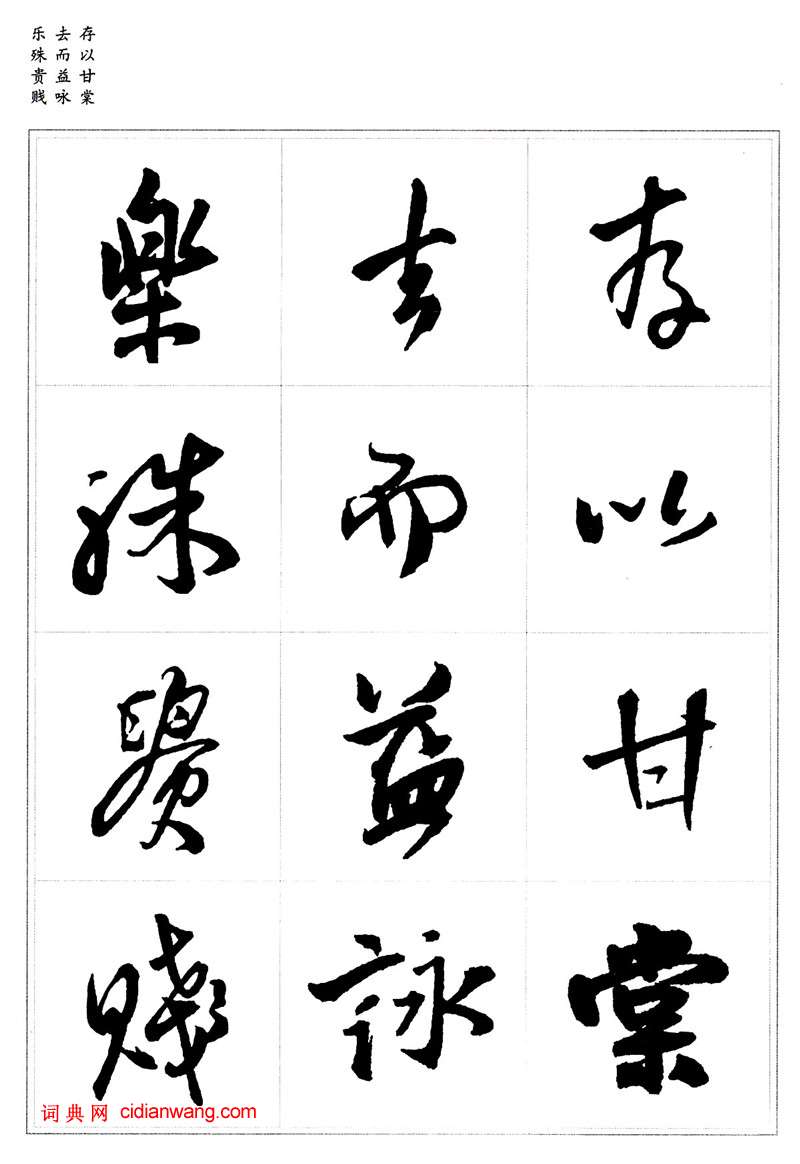 存以甘棠
去而益咏
乐殊贵贱
存以甘棠
去而益詠
樂殊貴賤
词典网 cidianwang.com